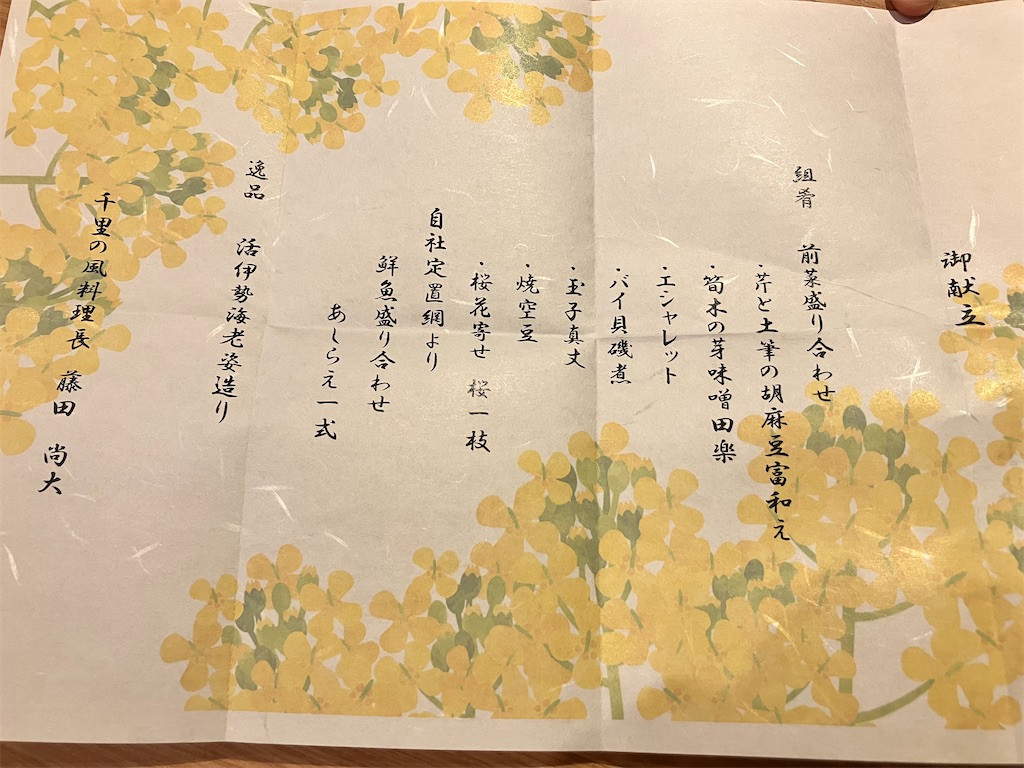 御献立
組肴　前菜盛り合わせ
・芹と土筆の胡麻豆富和え
・筍木の芽味噌田楽
・エシャレット
・バイ貝磯煮
・玉子真丈
・焼空豆
・桜花寄せ　桜一枝
自社定置網より
鮮魚盛り合わせ
あしらえ一式
逸品　活伊勢海老姿造り
千里の風料理長　藤田　尚大